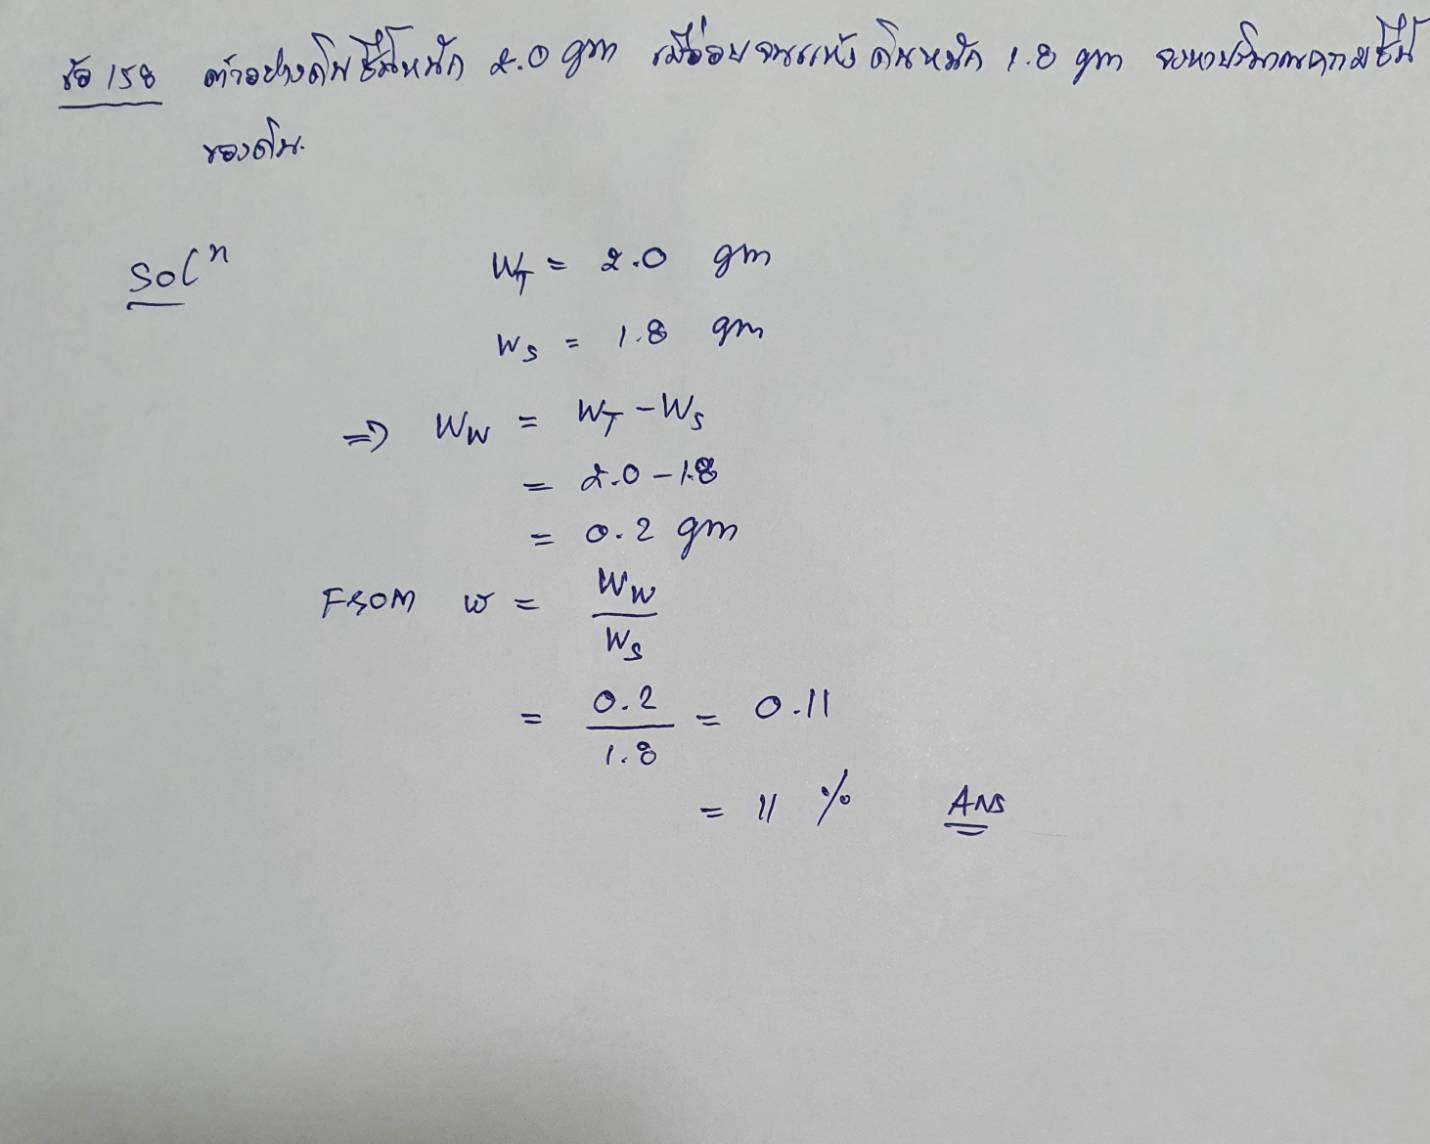 ข้อ 158 ตัวอย่างดินชื้นหนัก 2.0 gm เมื่ออบจนแห้ง ดินหนัก 1.8 gm จงหาปริมาณความชื้น
ของดิน.
SOLⁿ
W_T = 2.0 gm
W_S = 1.8 gm
⇒ W_W = W_T - W_S
= 2.0 - 1.8
= 0.2 gm
FROM w = W_W / W_S
= 0.2 / 1.8 = 0.11
= 11 % ANS